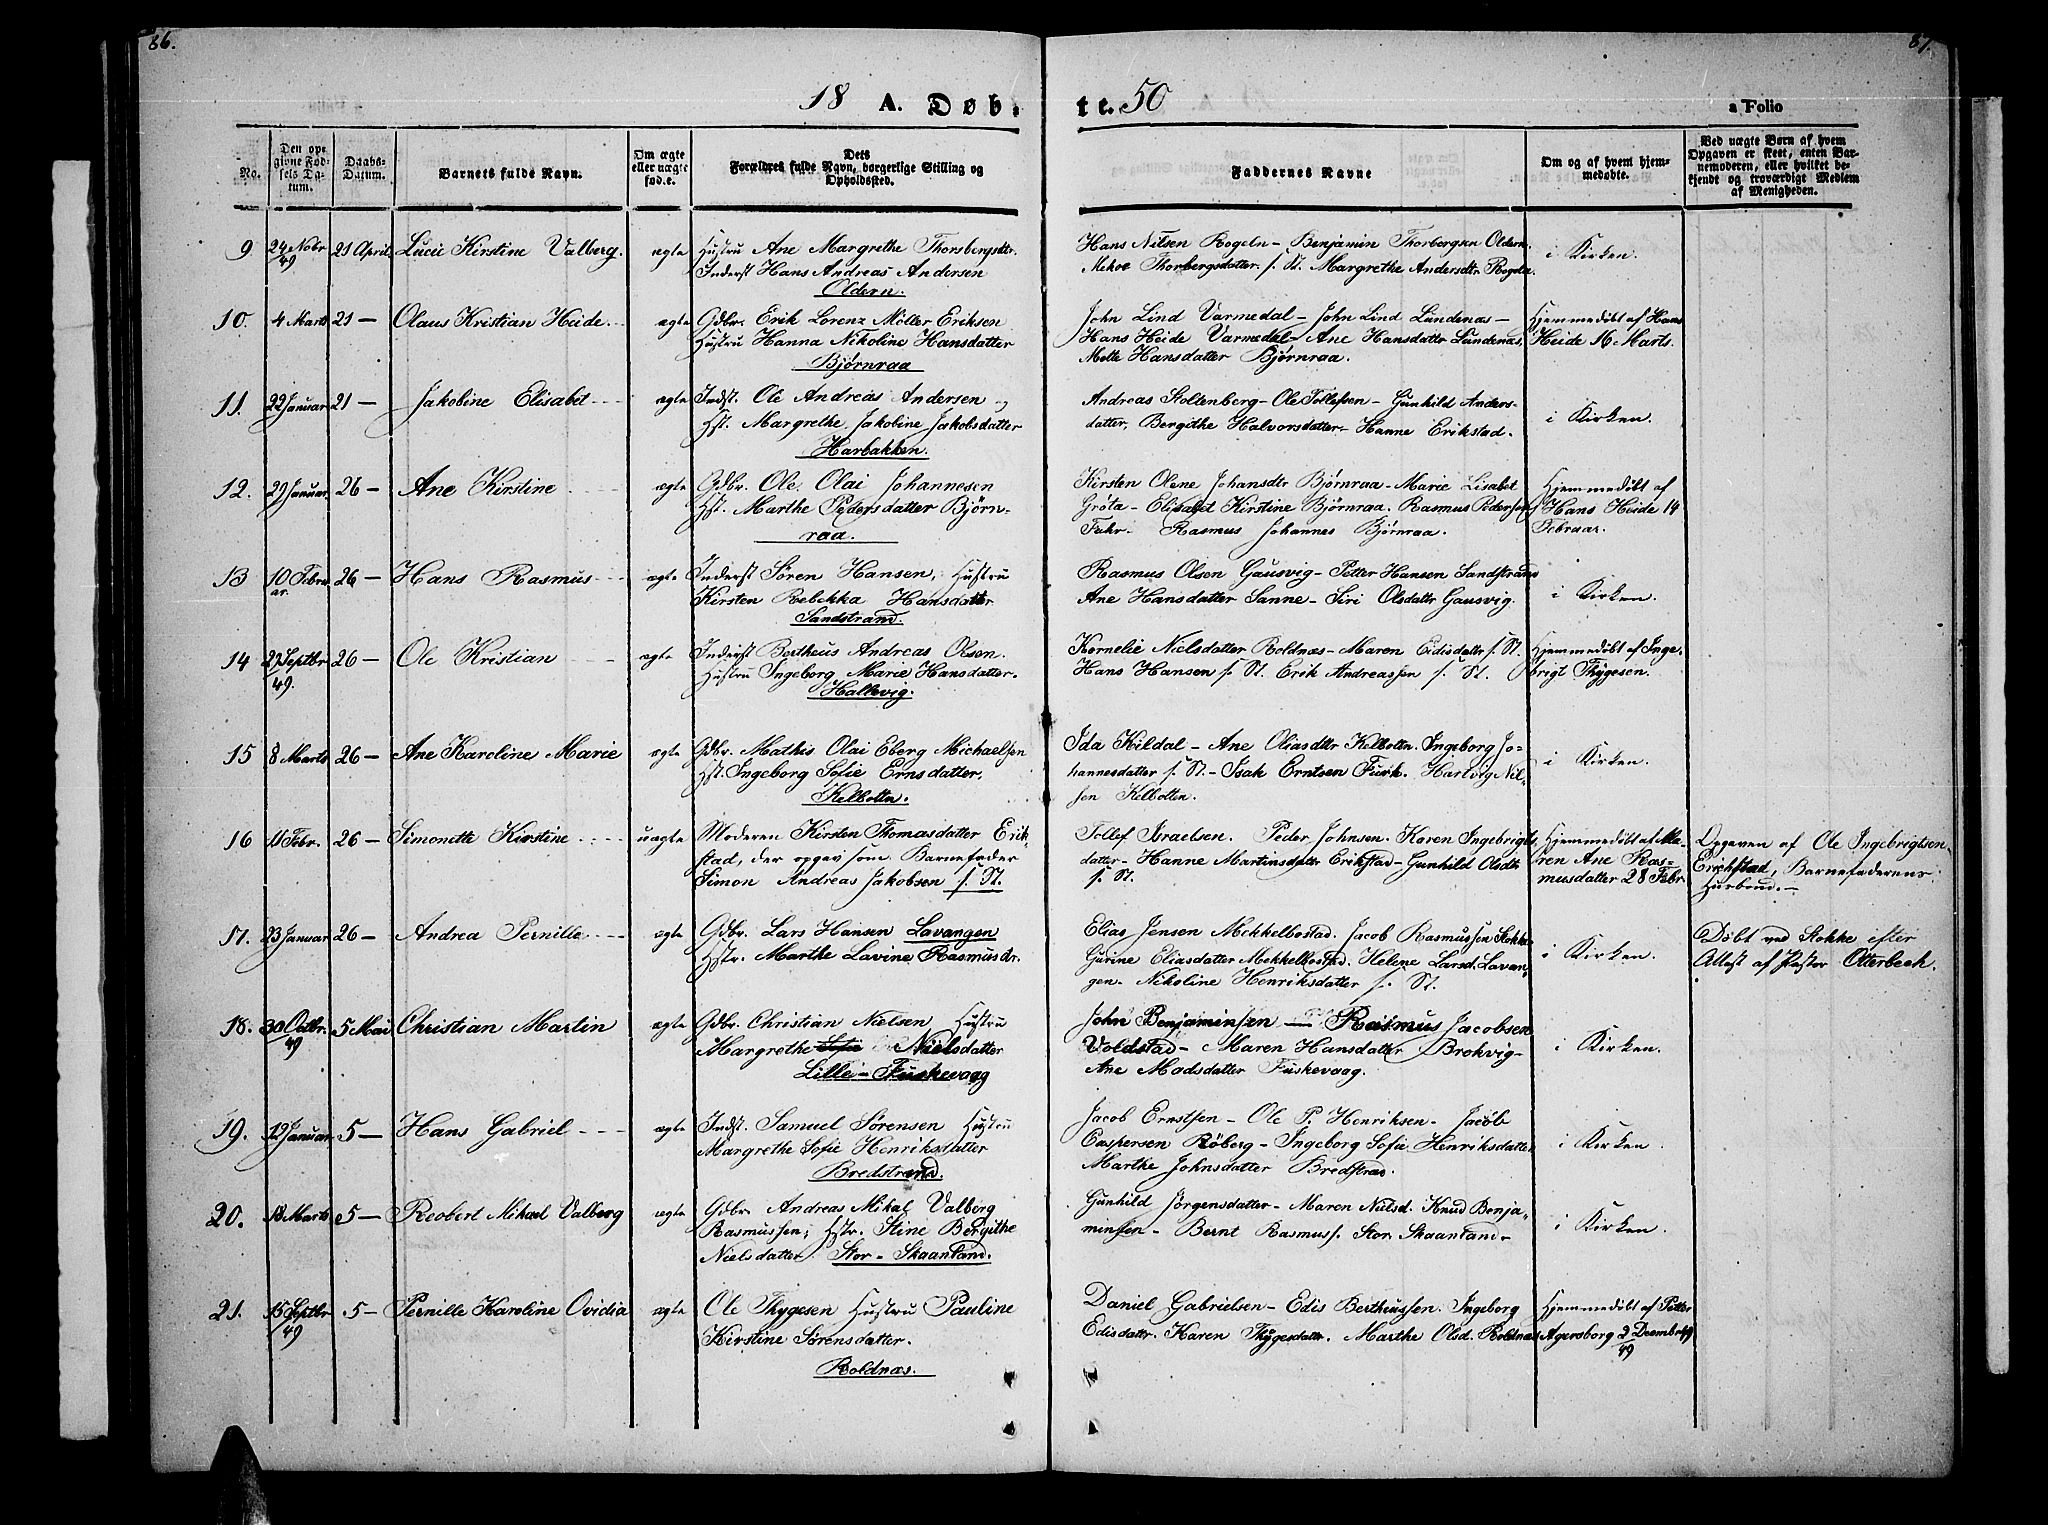 86.
87.
18 A. Døb-
te. 50
a Folio
No.
Den op-
givne Fød-
sels Da-
tum.
Daabs-
Datum.
Barnets fulde Navn.
Om ægte
eller uægte
fød.e.
Dets
Forældres fulde Navn, borgerlige Stilling og
Opholdssted.
Faddernes Navne
Om og af hvem hjem-
medøbte.
Ved uægte Børn af hvem
Opgaven er skeet, enten Bar-
nemoderen, eller hvilket be-
kjendt og troværdigt Medlem
af Menigheden.
9 24 Nobr 49 21 April Lucie Kirstine Valberg. ægte
Hustru Ane Margrethe Thorsbergsdtr.
Inderst Hans Andreas Andersen
Oldern.
Hans Nilsen Rogeln - Benjamin Thorbergsen Oldern.
Thorbergsdatter s. St. Margrethe Andersdtr. Rogeln.
i Kirken.
10. 4 Marts 21 — Olaus Kristian Heide. ægte
Gdbr. Erik Lorenz Möller Eriksen
Hustru Hanna Nikoline Hansdatter
Bjørnraa
John Lind Varmedal - John Lind Lundenæs -
Hans Heide Varmedal - Ane Hansdattr Lundenæs
Mette Hansdatter Bjørnraa.
Hjemmedøbt af Hans
Heide 16 Marts.
11. 22 Januar 21 — Jakobine Elisabet ægte
Indst. Ole Andreas Andersen og
Hst. Margrethe Jakobine Jakobsdatter
Harbakken.
Andreas Stoltenberg - Ole Tollefsen - Gunhild Anders-
datter. Bergithe Halvorsdatter - Hanne Erikstad -
i Kirken.
12. 29 Januar 26 — Ane Kirstine ægte
Gdbr. Ole Olai Johannesen
Hst. Marthe Pedersdatter Bjørn-
raa.
Kirsten Olene Johansdtr Bjørnraa - Marie Lisabet
Grøta - Elisabet Kirstine Bjørnraa. Rasmus Pedersen
Rasmus Johannes Bjørnraa.
Hjemmedøbt af
Hans Heide 14
Februar.
13 10 Febru-
ar. 26 — Hans Rasmus ægte
Inderst Søren Hansen, Hustru
Kirsten Rebekka Hansdatter
Sandstrand.
Rasmus Olsen Gausvig - Petter Hansen Sandstrand
Ane Hansdatter Sanne - Siri Olsdattr Gausvig.
i Kirken.
14 27 Septbr 49. 26 — Ole Kristian ægte
Inderst Bertheus Andreas Olsen.
Hustru Ingeborg Marie Hansdatter.
Hallevig.
Kornelie Nielsdatter Roldnæs - Maren Edisdattr s. St.
Hans Hansen s. St. Erik Andreassen s. St.
Hjemmedøbt af Inge-
brigt Thygesen.
15 8 Marts 26 — Ane Karoline Marie ægte
Gdbr. Mathis Olai Eberg Michaelsen
Hst. Ingeborg Sofie Ernsdatter.
Kelbotn.
Ida Kildal - Ane Oliasdttr Kelbottn. Ingeborg Jo-
hannesdatter s. St. - Isak Erntsen Furk. Hartvig Nil-
sen Kelbotten.
i Kirken.
16 11 Febr. 26 — Simonette Kirstine uægte
Moderen Kirsten Thomasdatter Erik-
stad, der opgav som Barnefader
Simon Andreas Jakobsen s. St.
Tollef Israelsen. Peder Johnsen. Karen Ingebrigts-
datter - Hanne Martinsdattr Erikstad - Gunhild Olsdtr
s. St.
Hjemmedøbt af Ma-
ren Ane Ras-
musdatter 28 Febr.
Opgaven af Ole Ingebrigtsen
Erichstad, Barnefaderens
Husbond. —
17. 23 Januar 26 — Andrea Pernille ægte
Gdbr. Lars Hansen Lavangen
Hstr. Marthe Lavine Rasmusdr.
Elias Jensen Mekkelbostad. Jacob Rasmussen Stokke
Gurine Eliasdatter Mekkelbostad. Helene Larsd. Lavan-
gen - Nikoline Henriksdatter s. St.
i Kirken.
Døbt ved Stokke efter
Attest af Pastor Otterbech.
18. 30 Octbr. 49 5 Mai Christian Martin ægte
Gdbr. Christian Nielsen Hustru
Margrethe Sofie Nielsdatter
Lille - Fuskevaag
John Benjaminsen — Rasmus Jacobsen
Voldstad - Maren Hansdatter Brokvig -
Ane Madsdatter Fuskevaag.
i Kirken.
19. 12 Januar 5 — Hans Gabriel ægte
Indst. Samuel Sørensen Hustru
Margrethe Sofie Henriksdatter
Bredstrand.
Jacob Ernstsen - Ole P. Henriksen - Jacob
Caspersen Røberg - Ingeborg Sofie Henriksdatter
Marthe Johnsdatter Bredstran.
i Kirken.
20. 18 Marts 5 — Reobert Mikael Valberg ægte
Gdbr. Andreas Mikal Valberg
Rasmussen; Hstr. Stine Bergithe
Nielsdatter Stor-Skaanland.
Gunhild Jørgensdatter - Maren Nielsd. Knud Benja-
minsen - Bernt Rasmuss. Stor Skaanland -
i Kirken.
21. 15 Septbr 49 5 — Pernille Karoline Ovidia ægte
Ole Thygesen Hustru Pauline
Kirstine Sørensdatter.
Roldnæs.
Daniel Gabrielsen - Edis Bertheussen. Ingeborg
Edisdattr. Karen Thygesdattr. Marthe Olsd. Roldnæs
Hjemmedøbt af Petter
Agersborg 2 Decembr 49
49